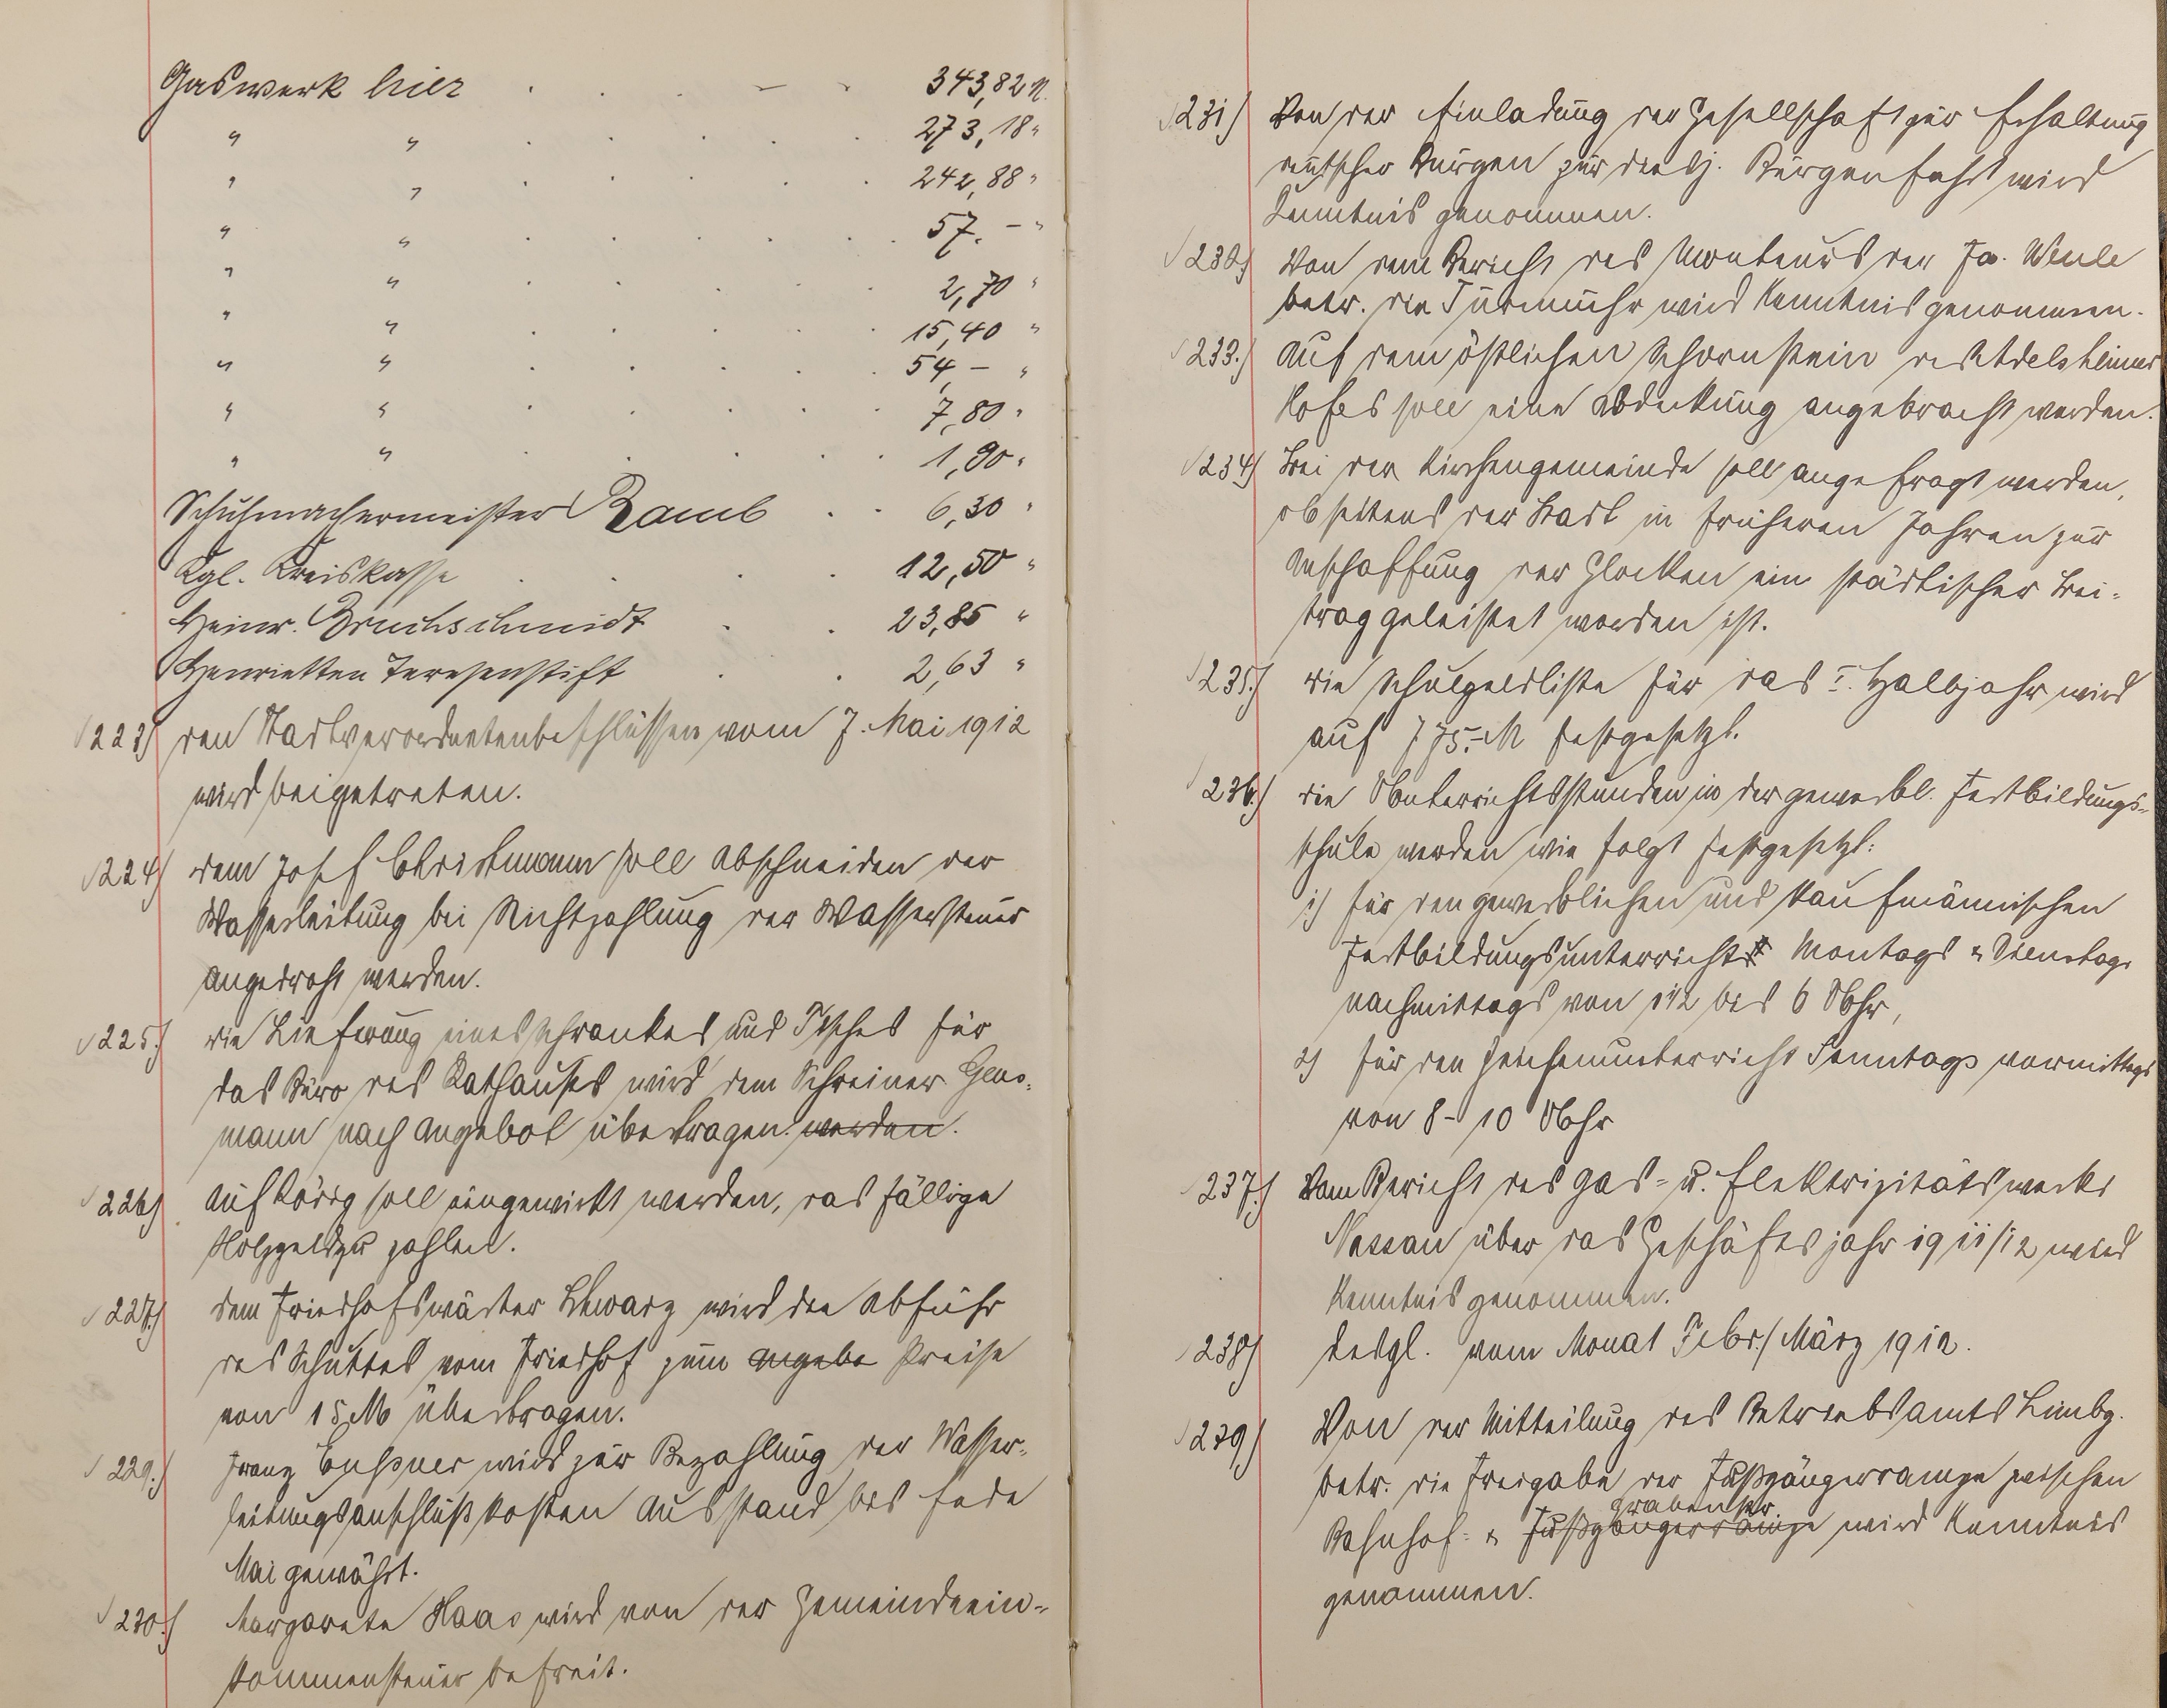 Gaswerk hier . . . – . 343,82 M.
" " . . . . . 273,18 "
" " . . . . . 242,88 "
" " . . . . . . 57.– "
" " . . . . . 2,70 "
" " . . . . . 15,40 "
" " . . . . . 54,– "
" " . . . . . 7,80 "
" " . . . . . 1,90 "
Schuhmachermeister Ramb . . 6,30 "
Kgl. Kreiskasse . . . . 12,50 "
Heinr. Bruchschmidt . . 23,85 "
Henrietten Teresenstift . . 2,63 "
223) den Stadtverordnetenbeschlüssen vom 7. Mai 1912
wird beigetreten.
224) dem Josef Christmann soll Abschneiden der
Wasserleitung bei Nichtzahlung der Wassersteuer
angedroht werden.
225.) die Lieferung eines Schrankes und Tisches für
das Büro des Rathauses wird dem Schreiner
mann nach Angebot übertragen. werden.
226) auf soll eingewirkt werden, das fällige
Holzgeld zu zahlen.
227.) dem Friedhofswärter Schwarz wird die Abfuhr
des Schuttes vom Friedhof zum Angebo Preise
von 15 M übertragen.
229.) Franz wird zur Bezahlung der Wasser-
leitungsanschlußkosten Ausstand bis Ende
Mai gewährt.
230.) Margarete Haas wird von der Gemeindeein-
kommensteuer befreit.
231) Von der Einladung der Gesellschaft zur Erhaltung
deutscher Burgen zur diesj. Burgenfahrt wird
Kenntnis genommen.
232.) Von dem Bericht des Monteurs der Fa. Weule
betr. die Turmuhr wird Kenntnis genommen.
233.) Auf dem östlichen Schornstein des Adelsheimer
Hofes soll eine Abdeckung angebracht werden.
234) Bei der Kirchengemeinde soll angefragt werden,
ob seitens der Stadt in früheren Jahren zur
Anschaffung der Glocken ein städtischer Bei-
trag geleistet worden ist.
235.) die Schulgeldliste für das I. Halbjahr wird
auf 775.– M festgesetzt.
236.) die Unterrichtsstunden in der gewerbl. Fortbildungs-
schule werden wie folgt festgesetzt:
1) für den gewerblichen und kaufmännischen
Fortbildungsunterricht Montags u Dienstags
nachmittags von 1 1/2 bis 6 Uhr,
2) für den Zeichenunterricht Sonntags vormittags
von 8–10 Uhr
237.) Vom Bericht des Gas- u. Elektrizitätswerks
Nassau über das Geschäftsjahr 1911/12 wird
Kenntnis genommen.
238) desgl. vom Monat Febr./März 1912.
239) Von der Mitteilung des Betriebsamts Limbg.
betr. die Freigabe der Fußgängerrampe zwischen
Grabenstr.
Bahnhof- u Fußgängerrampe wird Kenntnis
genommen.